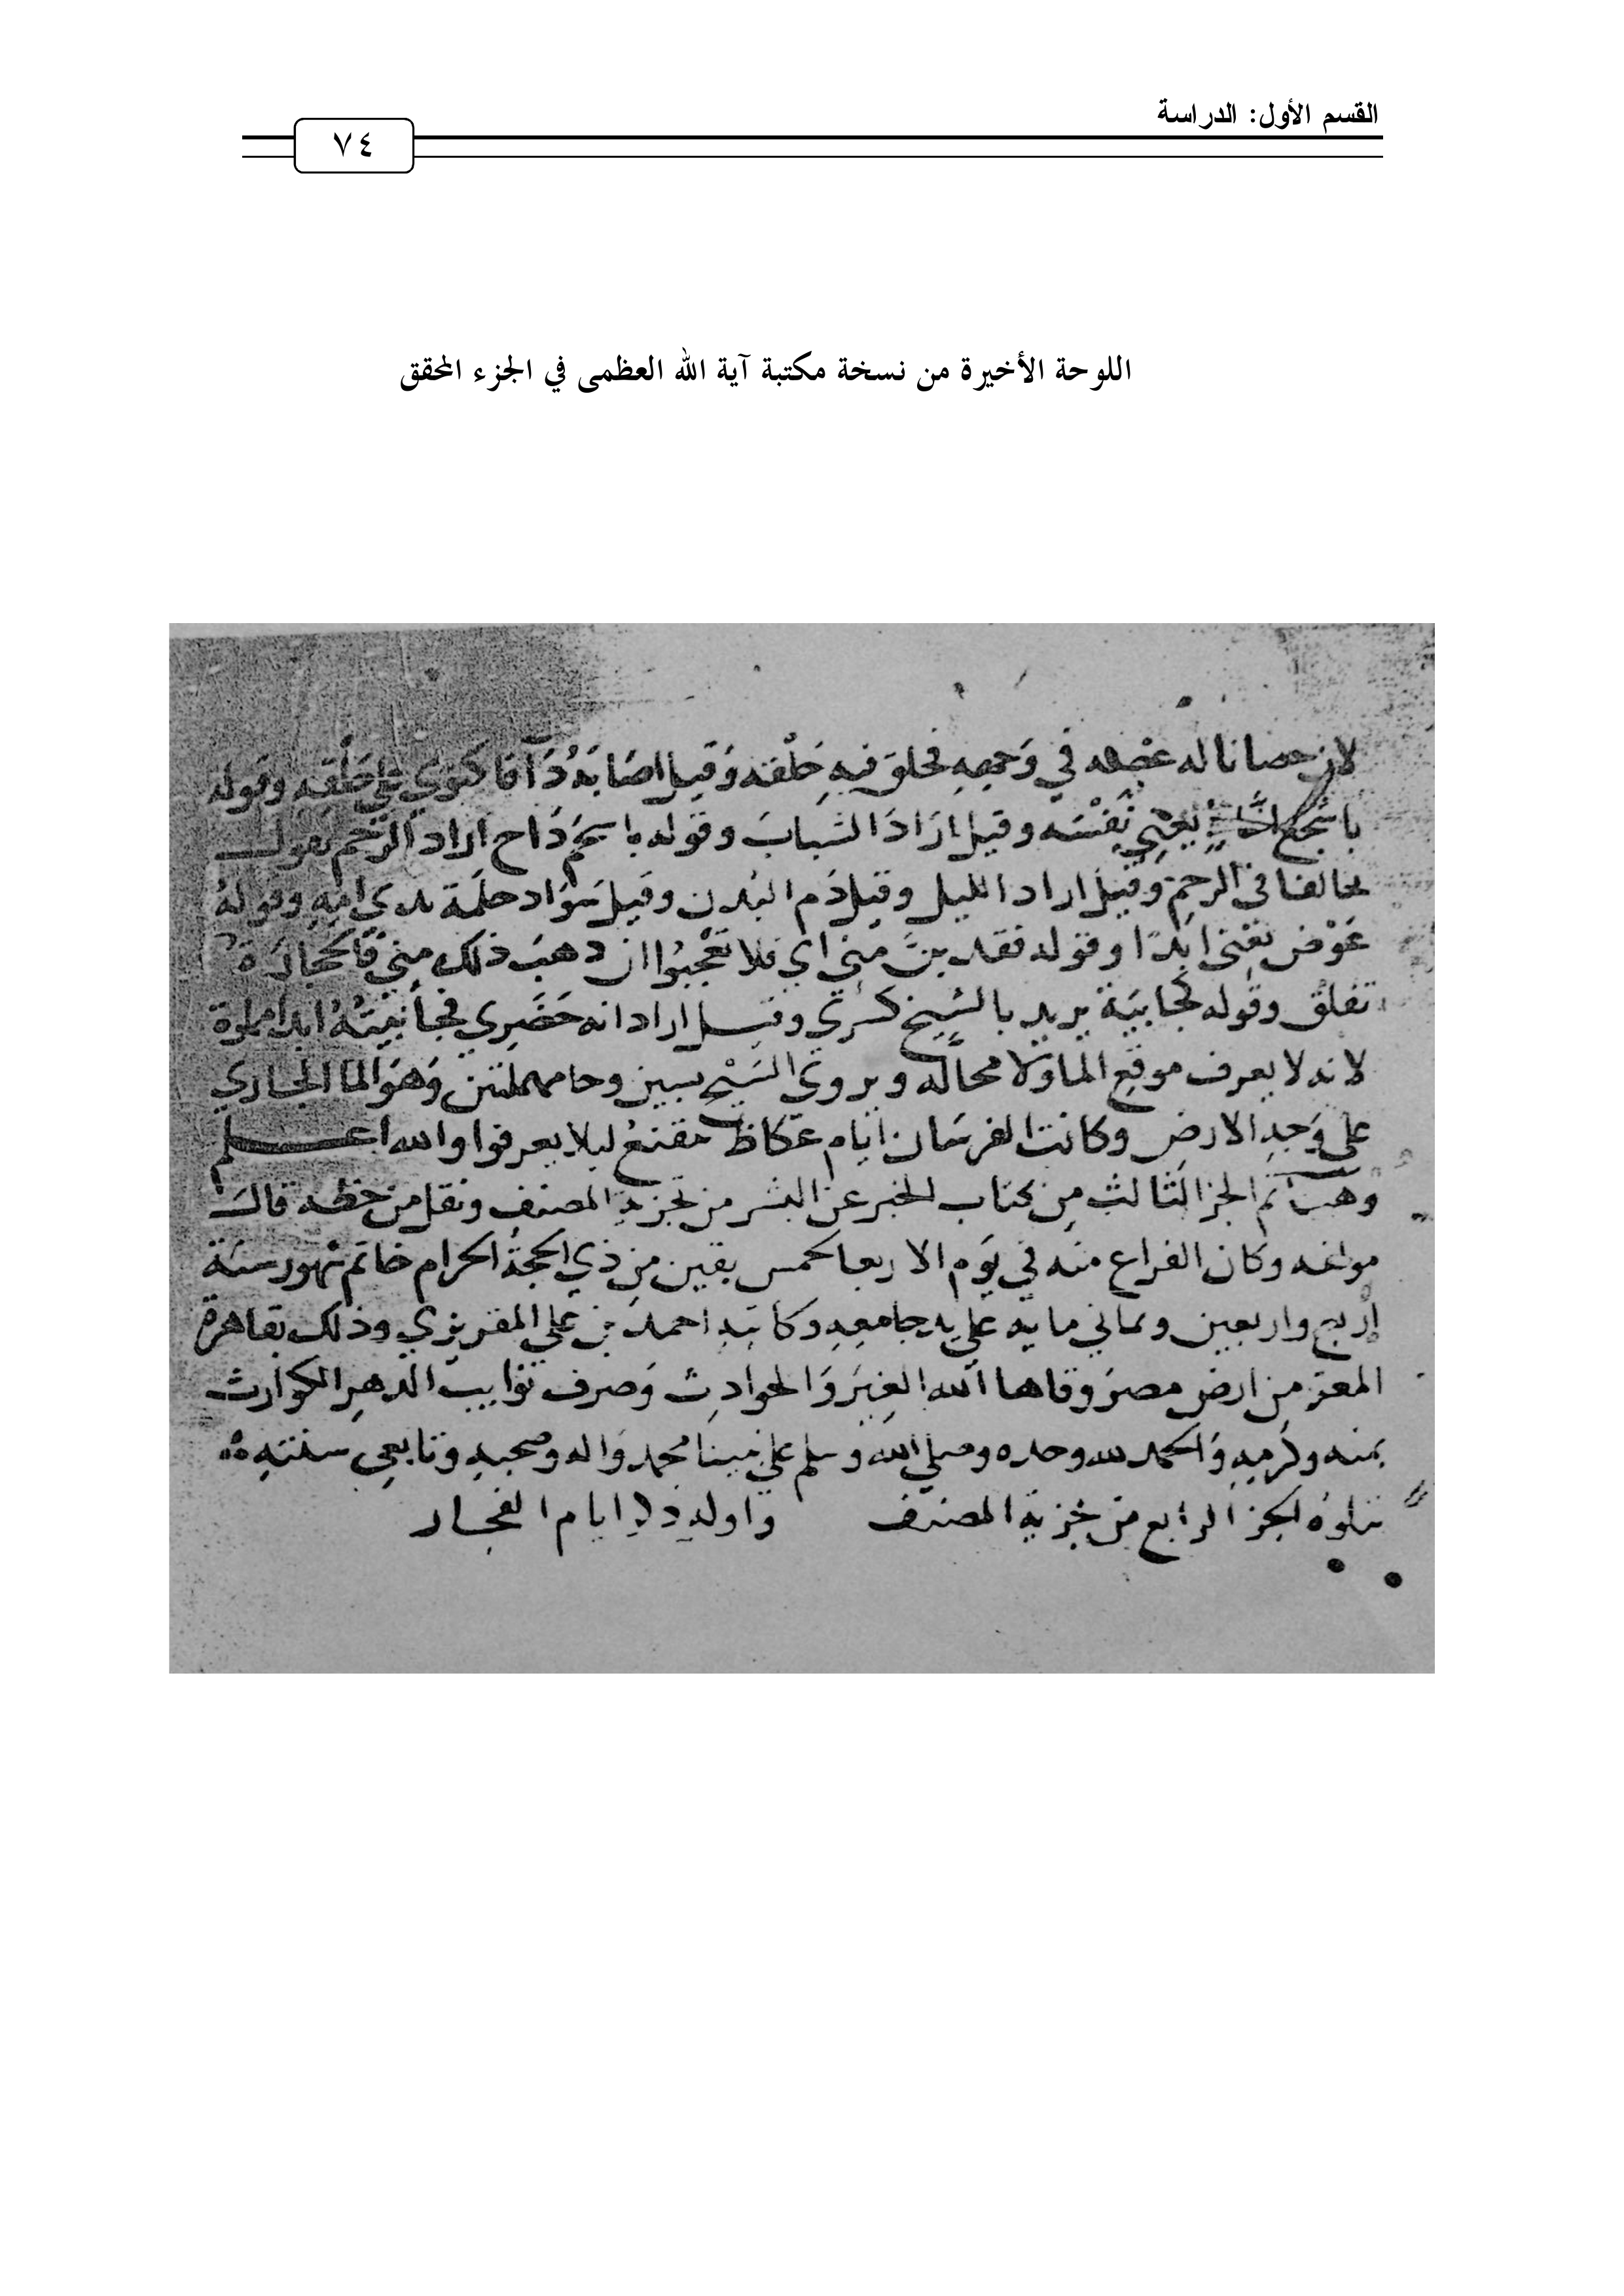 القسم الأول: الدراسة
٧٤
اللوحة الأخيرة من نسخة مكتبة آية الله العظمى في الجزء المحقق
لان حصانا له عضه في وجهه فخلق فيه خلقته وقيل اصابه دآ فاكتوي علي حلقه وقوله
يعني نفسه وقيل اراد الشباب وقوله باسحم داح اراد الرحم يقول
تحالفنا في الرحم وقيل اراد الليل وقيل دم البدن وقيل سواد حلمة ثدي امه وقوله
عوض يعني ابدا وقوله فقد بن مني اي فلا تعجبوا ان ذهب ذلك مني فالحجارة
تفلق وقوله كجابية يريد بالشيخ كسري وقيل اراد انه حضري فجابيته ابدا مملوة
لانه لا يعرف موقع الما ولا محاله ويروي السيح بسين وحا مهملتين وهو الما الجاري
علي وجه الارض وكانت الفرسان ايام عكاظ مقنع ليلا يعرفوا والله اعلم
وهنا تم الجز الثالث من كتاب الخبر عن البشر من تجزية المصنف ونقل من خطه قال
مولفه وكان الفراغ منه في يوم الاربعا لخمس بقين من ذي الحجة الحرام خاتم شهور سنة
اربع واربعين وثماني ماية علي يد جامعه وكاتبه احمد بن علي المقريزي وذلك بقاهرة
المعز من ارض مصر وقاها الله الغير والحوادث وصرف نوايب الدهر الكوارث
بمنه وكرمه والحمد لله وحده وصلي الله وسلم علي نبينا محمد واله وصحبه وتابعي سنته
يتلوه الجز الرابع من تجزية المصنف واوله ذكر ايام الفجار